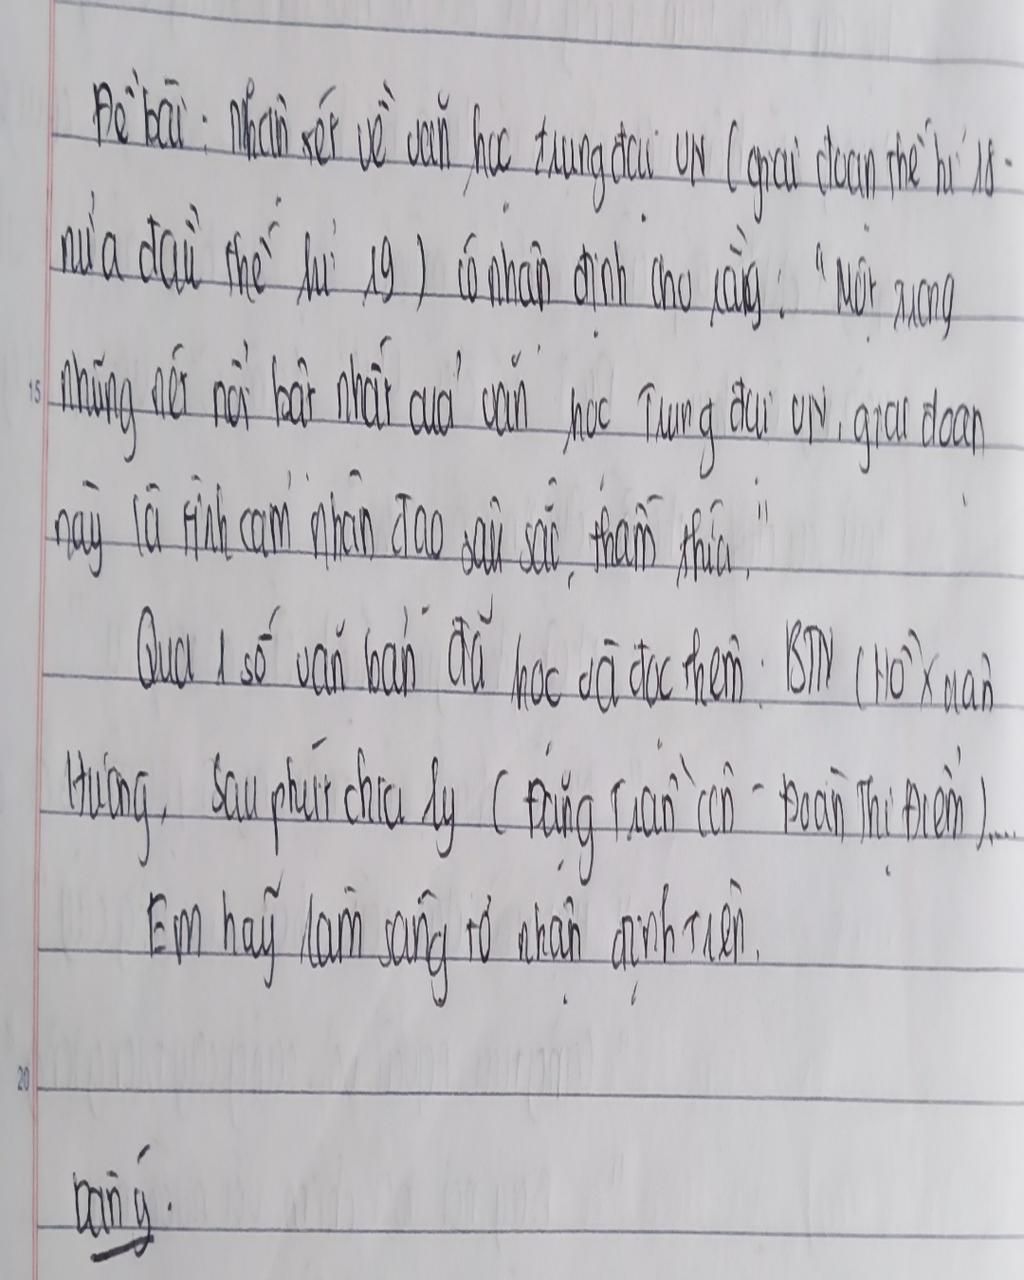 Đề bài: Nhận xét về văn học trung đại VN (giai đoạn thế kỉ 18 -
nửa đầu thế kỉ 19) có nhận định cho rằng: "Một trong
15 những nét nổi bật nhất của văn học Trung đại VN, giai đoạn
này là tình cảm nhân đạo sâu sắc, thấm thía."
Qua 1 số văn bản đã học và đọc thêm: BTN (Hồ Xuân
Hương, Sau phút chia ly (Đặng Trần Côn - Đoàn Thị Điểm)....
Em hãy làm sáng tỏ nhận định trên.
20
Dàn ý.